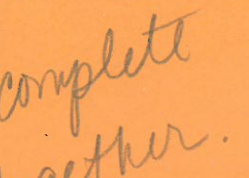 complete
ether.